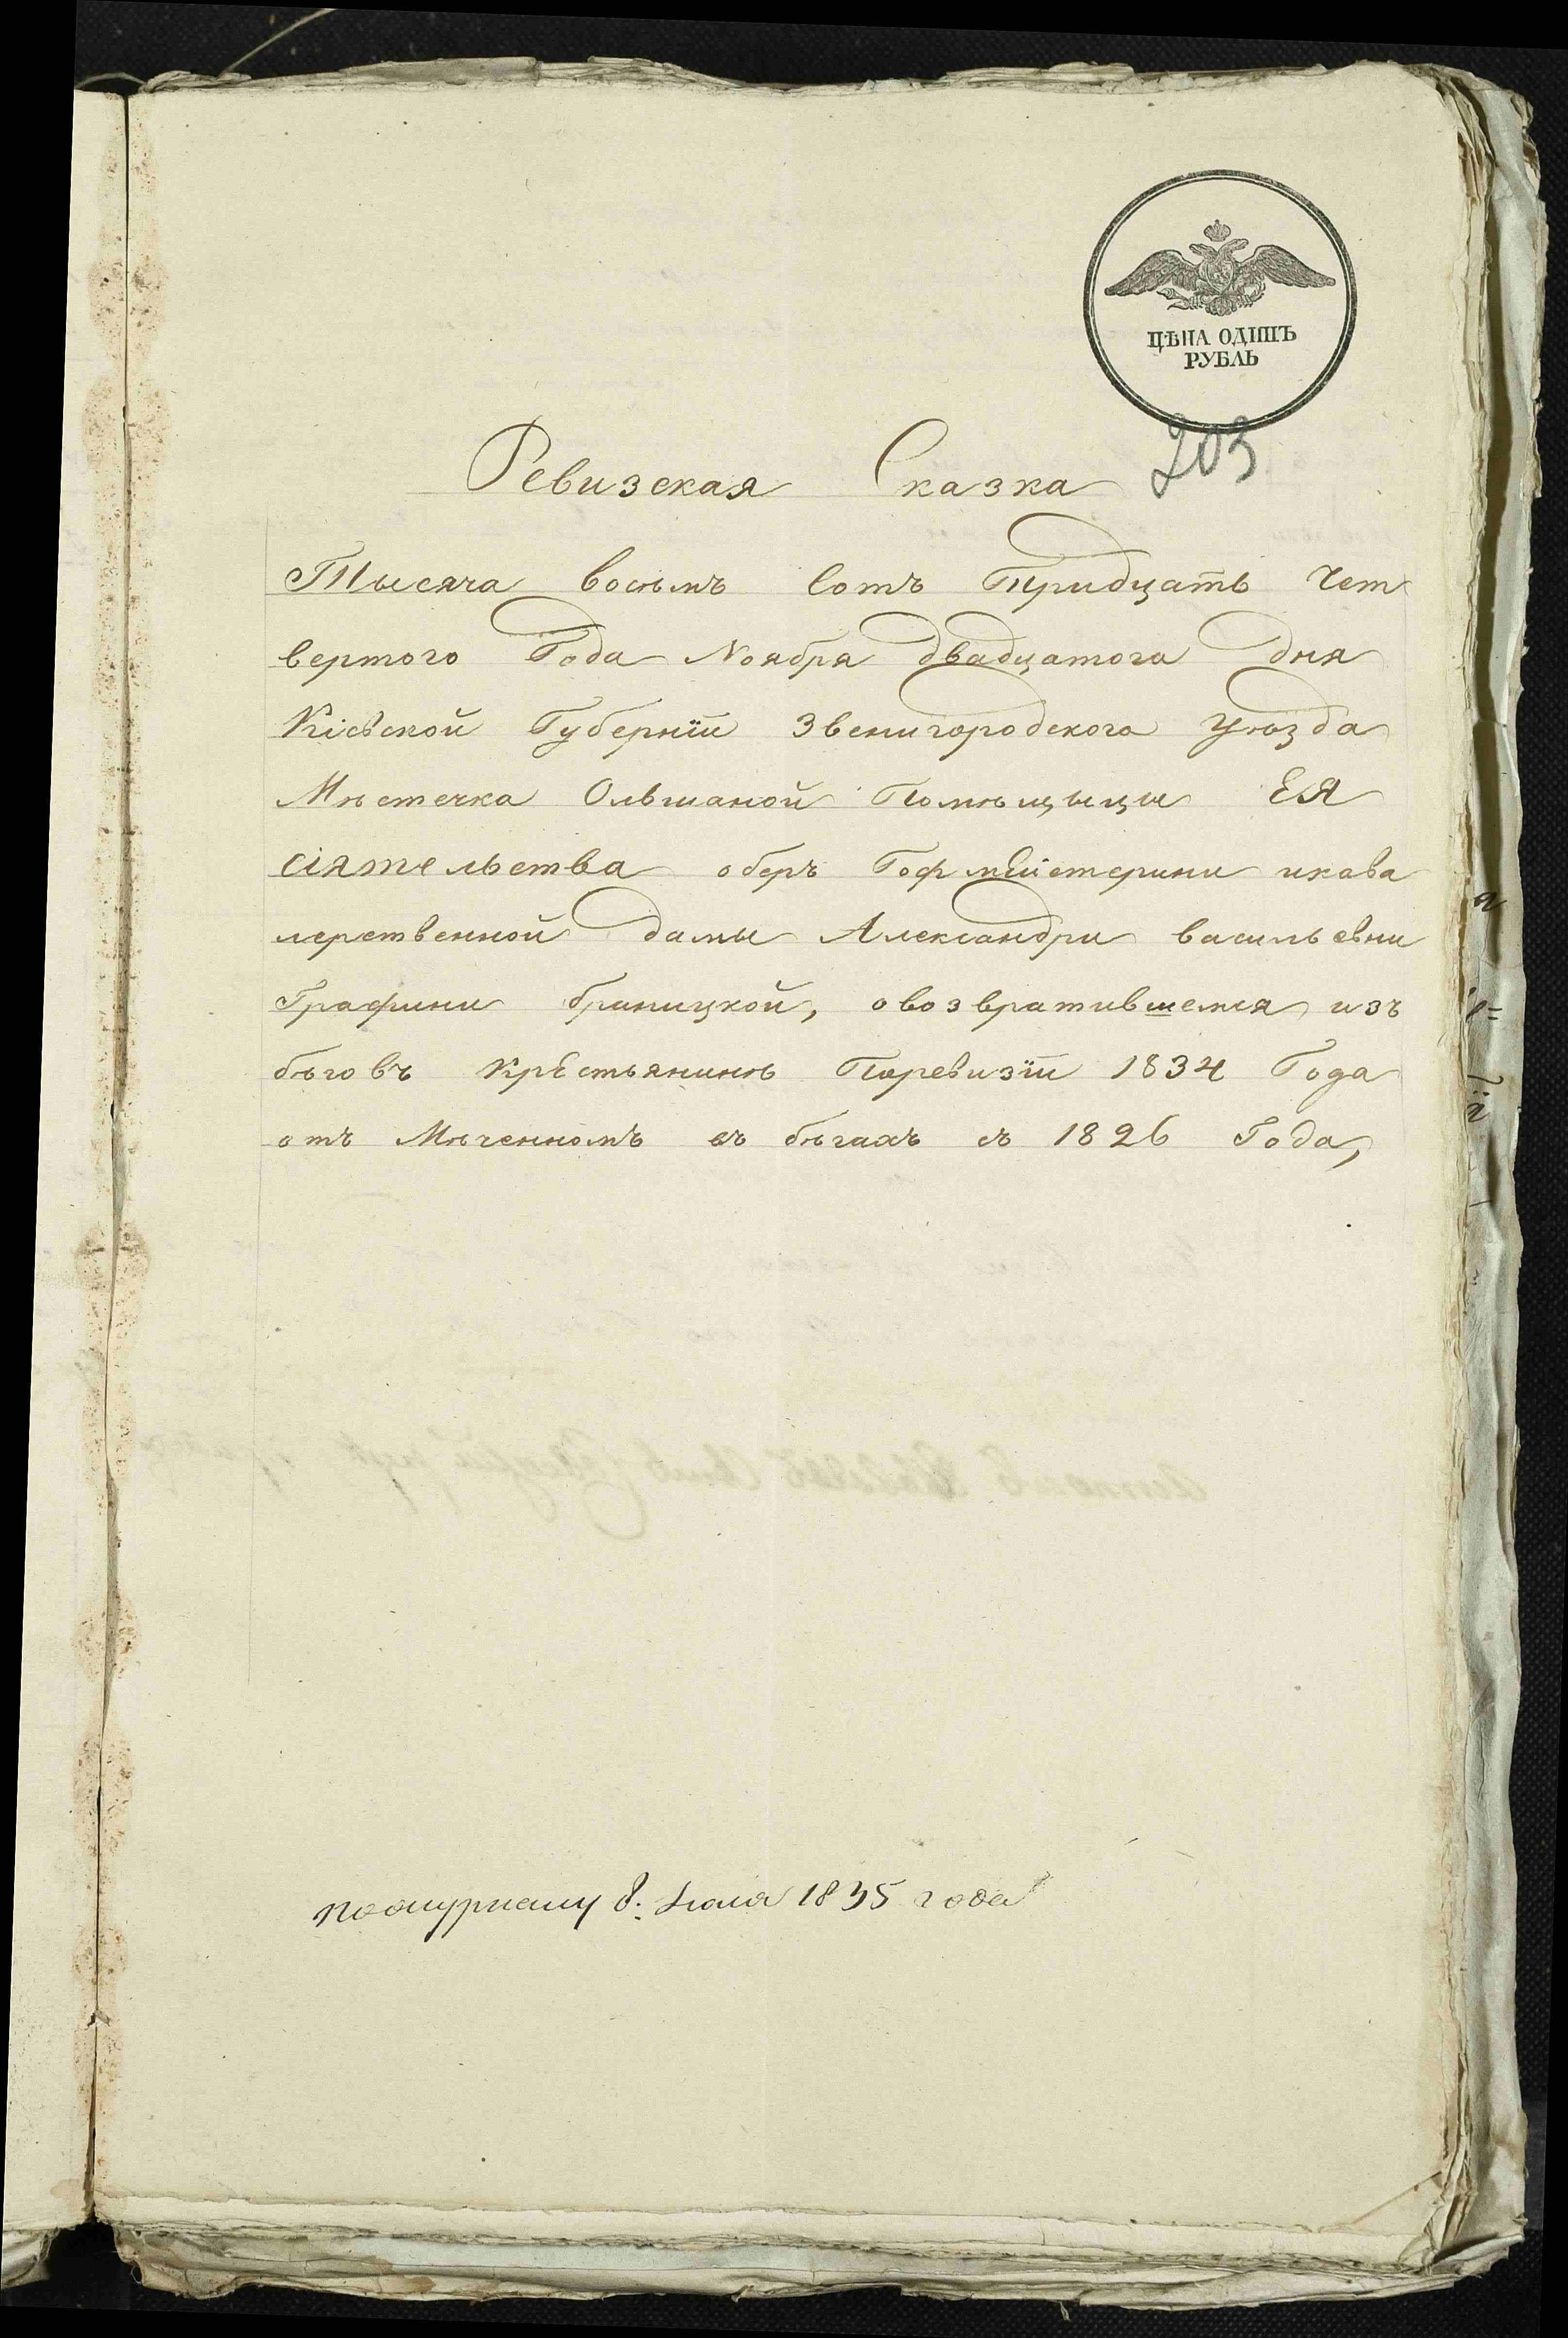 ЦѢНА ОДИНЪ
РУБЛЬ
203
Ревизская Сказка
Тысяча восѣмъ Сотъ Тридцать Чет
вертого Года Ноября двадцатого дня
Кіевской Губерніи Звенигородского Уѣзда
Мѣстечка Ольшаной Помѣщыцы ЕЯ
сіятельства оберъ Гофмейстерини икава
лерственной дамы Александри васильевни
Графини браницкой, овозвратившемся изъ
бѣговъ крестьянинѣ Поревизіи 1834 Года
отъ Мѣченномъ въ бѣгахъ съ 1826 Года,
8. Іюля 1835 года